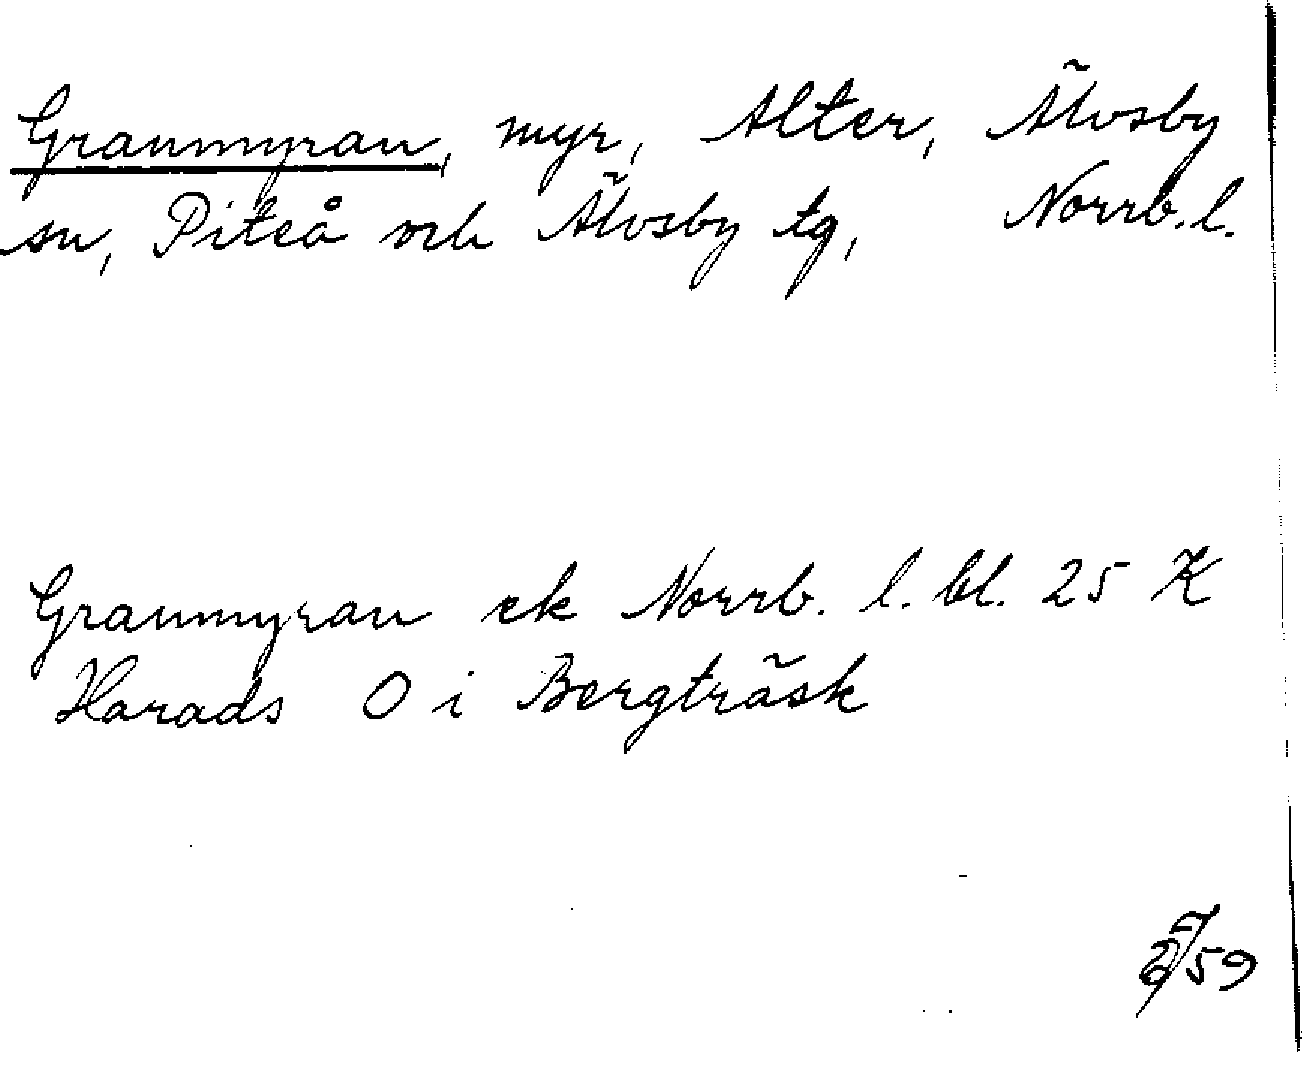 Granmyran, myr, Alter, Älvsby
sn, Piteå och Älvsby tg, Norrb.l.
Granmyran ek Norrb. l. bl. 25 K
Harads O i Bergträsk